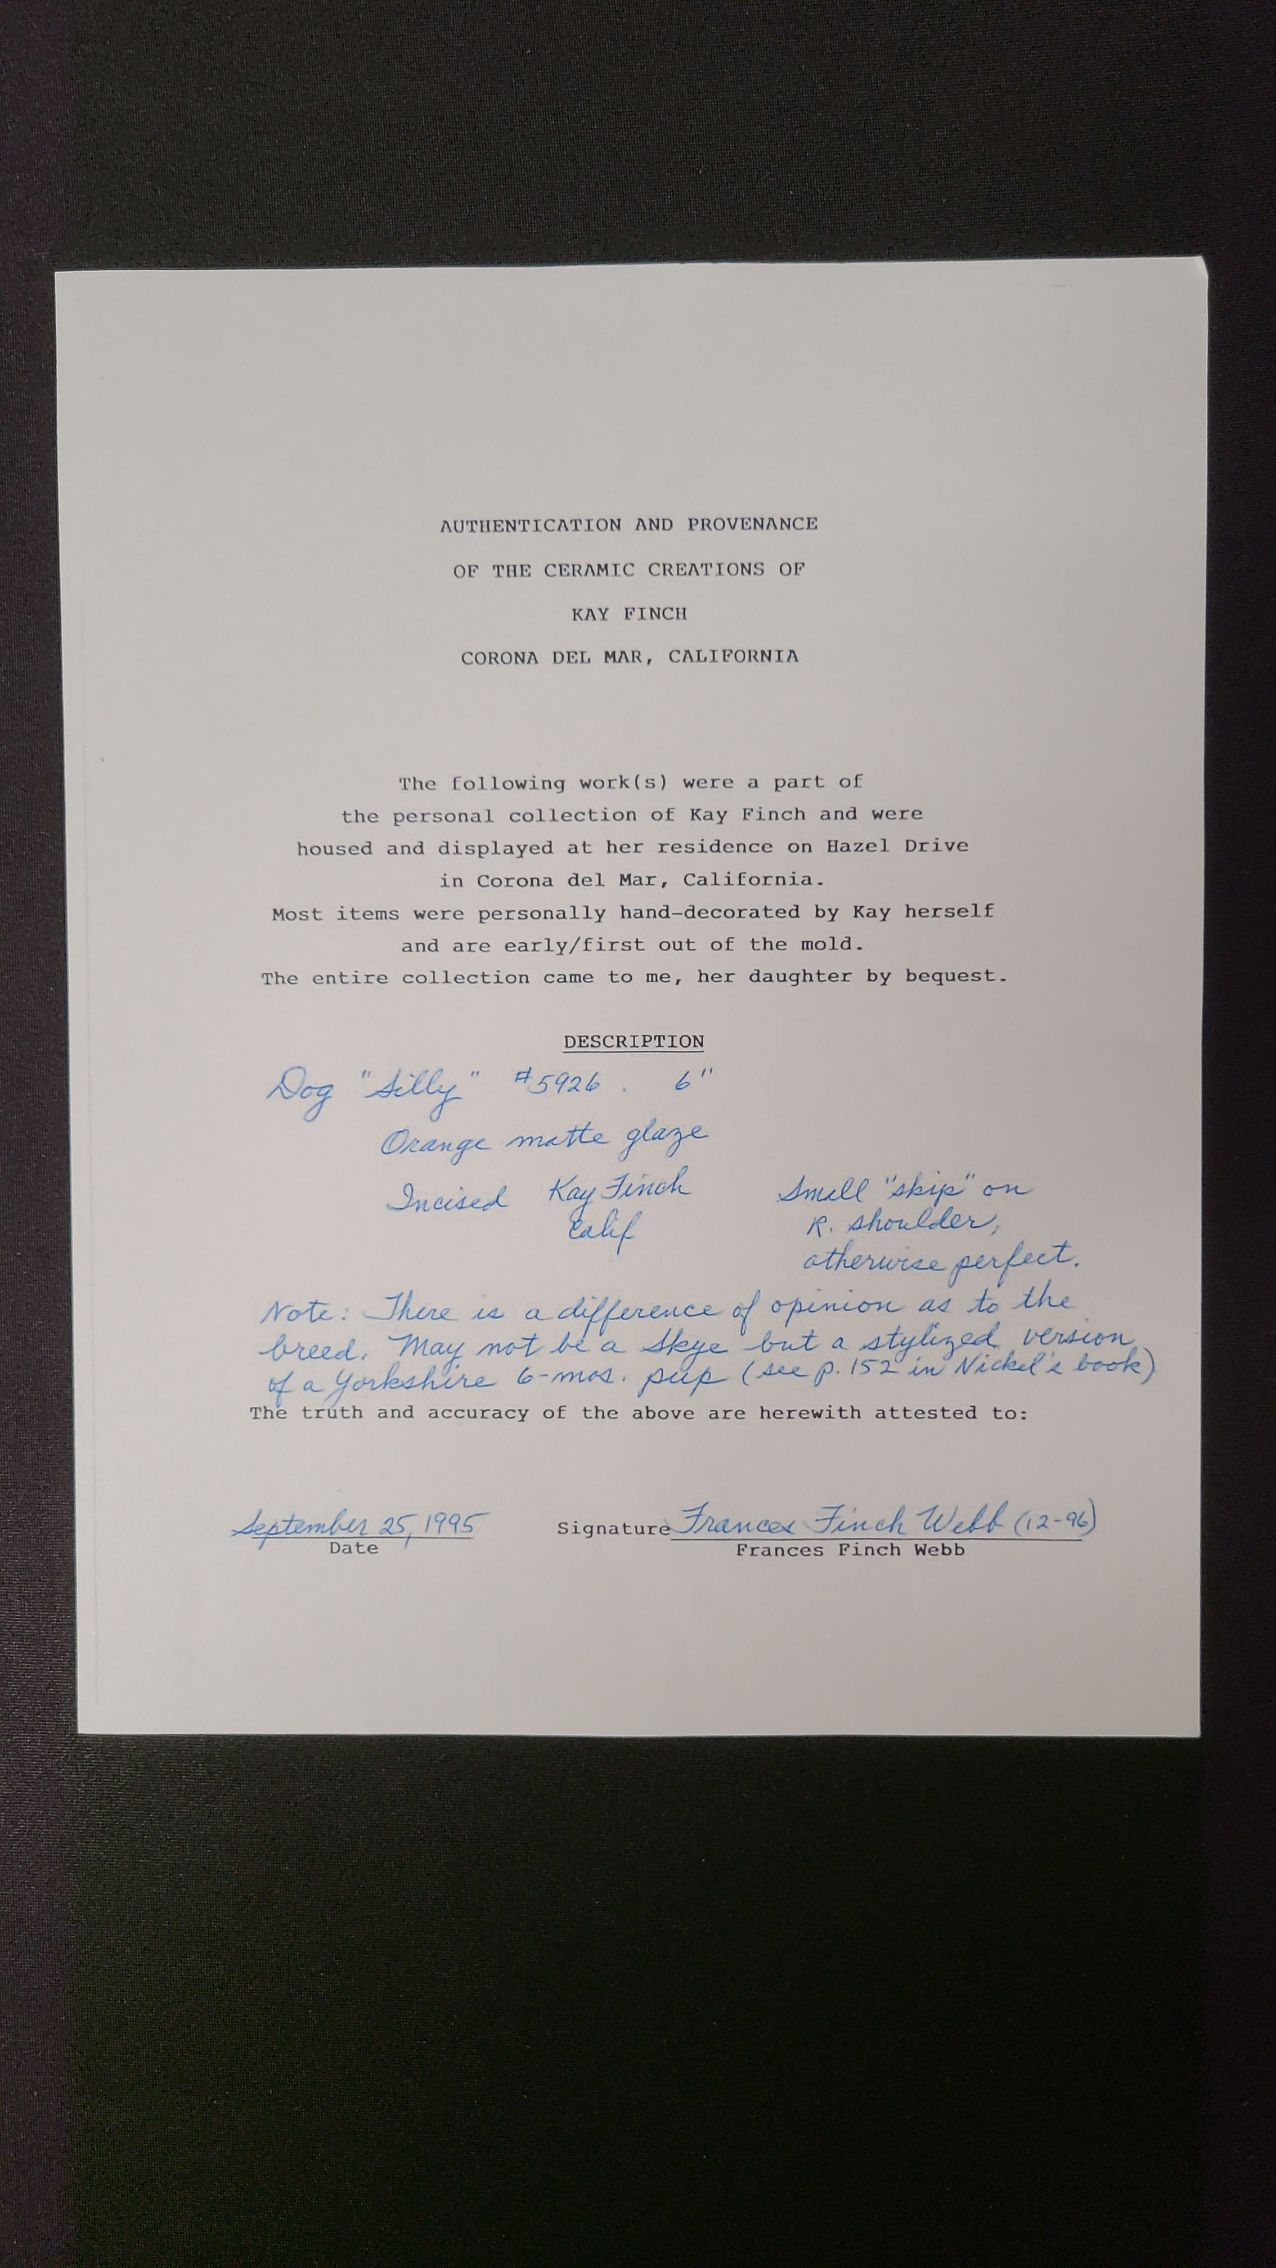 AUTHENTICATION AND PROVENANCE
OF THE CERAMIC CREATIONS OF
KAY FINCH
CORONA DEL MAR, CALIFORNIA
The following work(s) were a part of
the personal collection of Kay Finch and were
housed and displayed at her residence on Hazel Drive
in Corona del Mar, California.
Most items were personally hand-decorated by Kay herself
and are early/first out of the mold.
The entire collection came to me, her daughter by bequest.
DESCRIPTION
Dog "Silly" #5926. 6"
Orange matte glaze
Incised Kay Finch
Calif
Small "skip" on
R. shoulder,
otherwise perfect.
Note: There is a difference of opinion as to the
breed. May not be a Skye but a stylized version
of a Yorkshire 6-mos. pup (see p. 152 in Nickel's book)
The truth and accuracy of the above are herewith attested to:
September 25, 1995 Signature Frances Finch Webb (12-96)
Date Frances Finch Webb